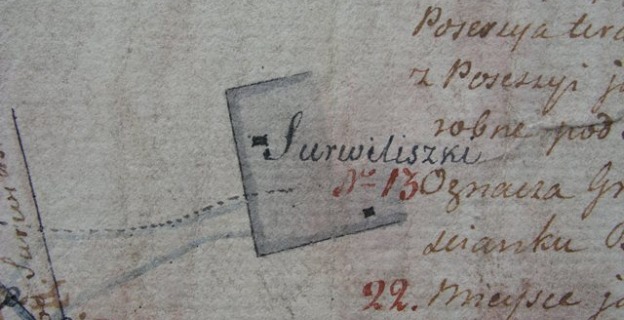 Posessya
z Posessyi
robne pod
Surwiliszki
No 13 Oznacza Gr
scianku
22. Mieysce